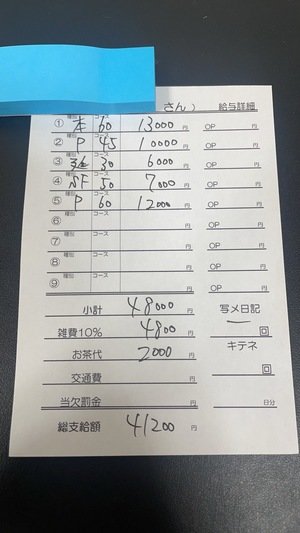 さん） 給与詳細
① 種別 本 コース 60 13000 円 OP 円
② 種別 P コース 45 10000 円 OP 円
③ 種別 コース 30 6000 円 OP 円
④ 種別 NF コース 50 7000 円 OP 円
⑤ 種別 P コース 60 12000 円 OP 円
⑥ 種別 コース 円 OP 円
⑦ 種別 コース 円 OP 円
⑧ 種別 コース 円 OP 円
⑨ 種別 コース 円 OP 円
小計 48000 円 写メ日記
雑費10% 4800 円 回
お茶代 2000 円 キテネ
交通費 円 回
当欠罰金 円 日分
総支給額 41200 円